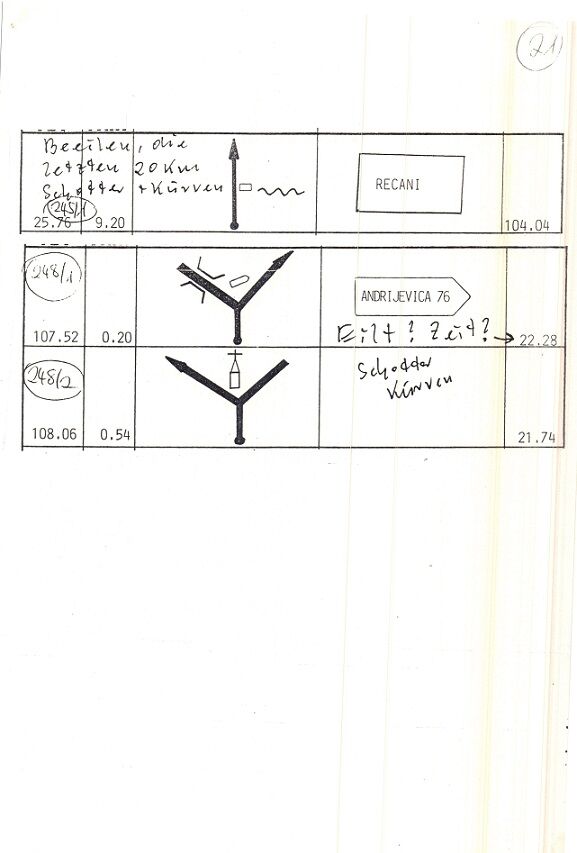 21
Beeilen, die
letzten 20 Km
Schotter + Kurven
245/1
25.76 9.20
RECANI
104.04
248/1
107.52 0.20
ANDRIJEVICA 76
Eilt? Zeit? → 22.28
248/2
Schotter
Kurven
108.06 0.54
21.74